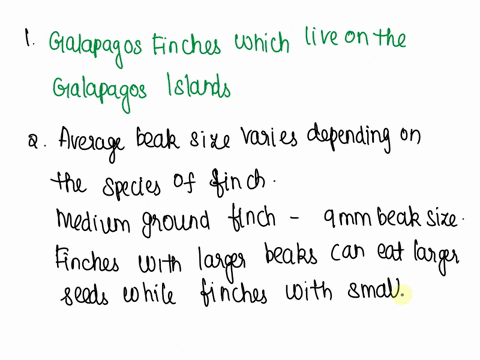 1. Galapagos Finches which live on the
Galapagos Islands
2. Average beak size varies depending on
the species of finch.
Medium ground finch - 9mm beak size.
Finches with larger beaks can eat larger
seeds while finches with small.